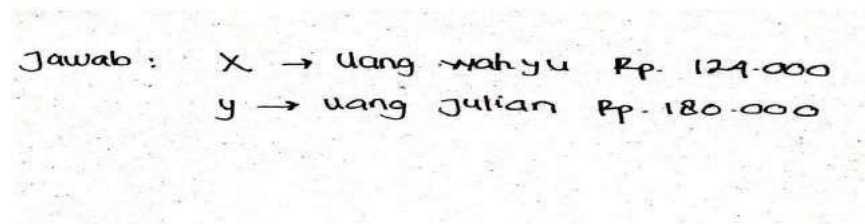 Jawab : X → Uang wahyu Rp. 124.000
y → uang Julian Rp. 180.000